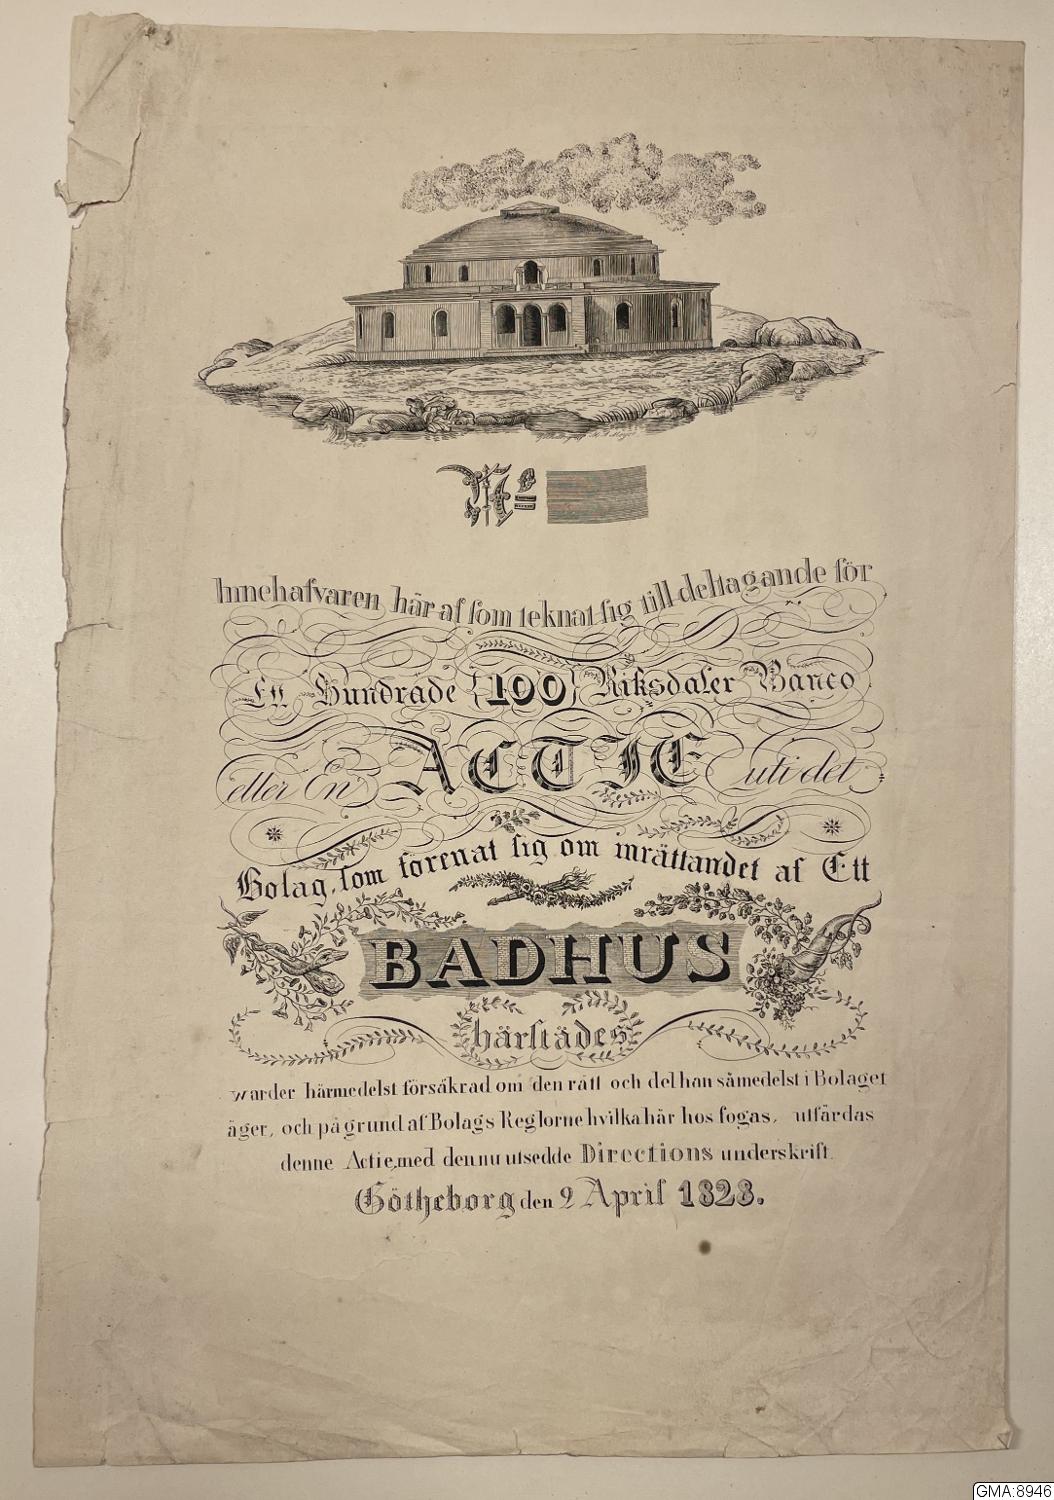 No
Innehafvaren här af som teknat sig till deltagande för
Ett Hundrade {100} Riksdaler Banco
eller En ACTIE uti det
Bolag, som förenat sig om inrättandet af Ett
BADHUS
härstädes
warder härmedelst försäkrad om den rätt och del han såmedelst i Bolaget
äger, och på grund af Bolags Reglorne hvilka här hos fogas, utfärdas
denne Actie, med den nu utsedde Directions underskrift.
Götheborg den 9 April 1828.
GMA:8946